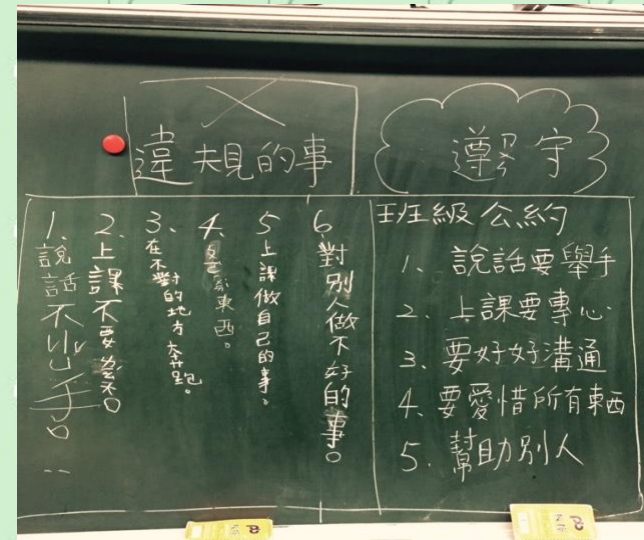 違規的事
1、說話不尖手。
2、上課不要
3、在不對的地方奔跑。
4、東西。
5、上課做自己的事。
6、對別人做不好的事。
遵守
班級公約
1、說話要舉手
2、上課要專心
3、要好好溝通
4、要愛惜所有東西
5、幫助別人